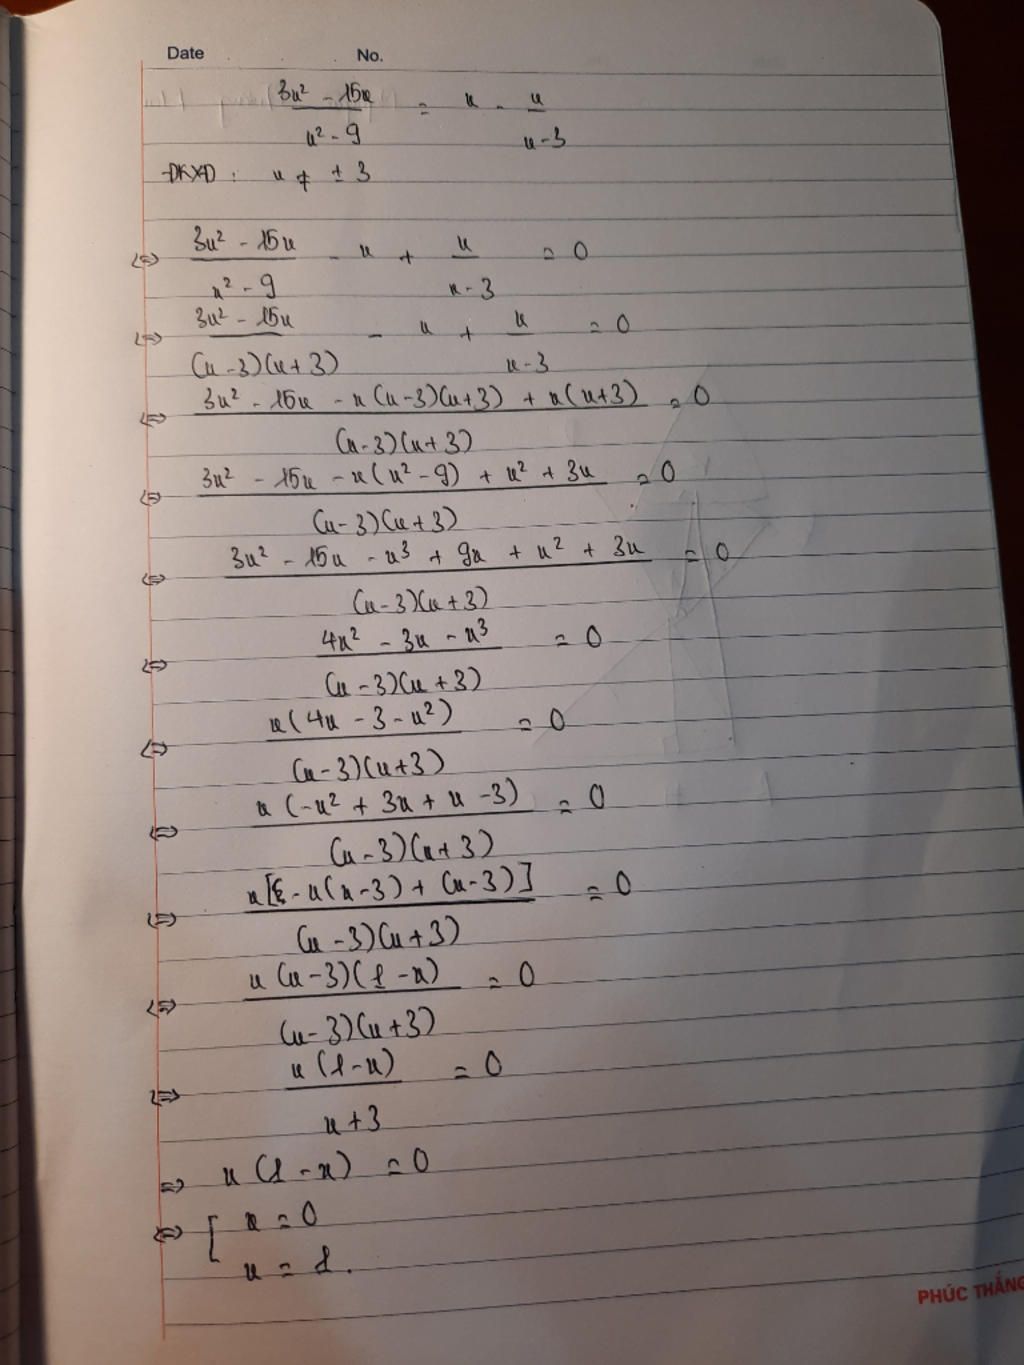 Date No.
3x² - 15x / x² - 9 = x - x / x - 3
ĐKXĐ: x ≠ ± 3
<=> 3x² - 15x / x² - 9 - x + x / x - 3 = 0
<=> 3x² - 15x / (x - 3)(x + 3) - x + x / x - 3 = 0
<=> 3x² - 15x - x(x - 3)(x + 3) + x(x + 3) / (x - 3)(x + 3) = 0
<=> 3x² - 15x - x(x² - 9) + x² + 3x / (x - 3)(x + 3) = 0
<=> 3x² - 15x - x³ + 9x + x² + 3x / (x - 3)(x + 3) = 0
<=> 4x² - 3x - x³ / (x - 3)(x + 3) = 0
<=> x(4x - 3 - x²) / (x - 3)(x + 3) = 0
<=> x(-x² + 3x + x - 3) / (x - 3)(x + 3) = 0
<=> x[- x(x - 3) + (x - 3)] / (x - 3)(x + 3) = 0
<=> x(x - 3)(1 - x) / (x - 3)(x + 3) = 0
<=> x(1 - x) / x + 3 = 0
=> x(1 - x) = 0
<=> [ x = 0
x = 1.
PHÚC THẮNG